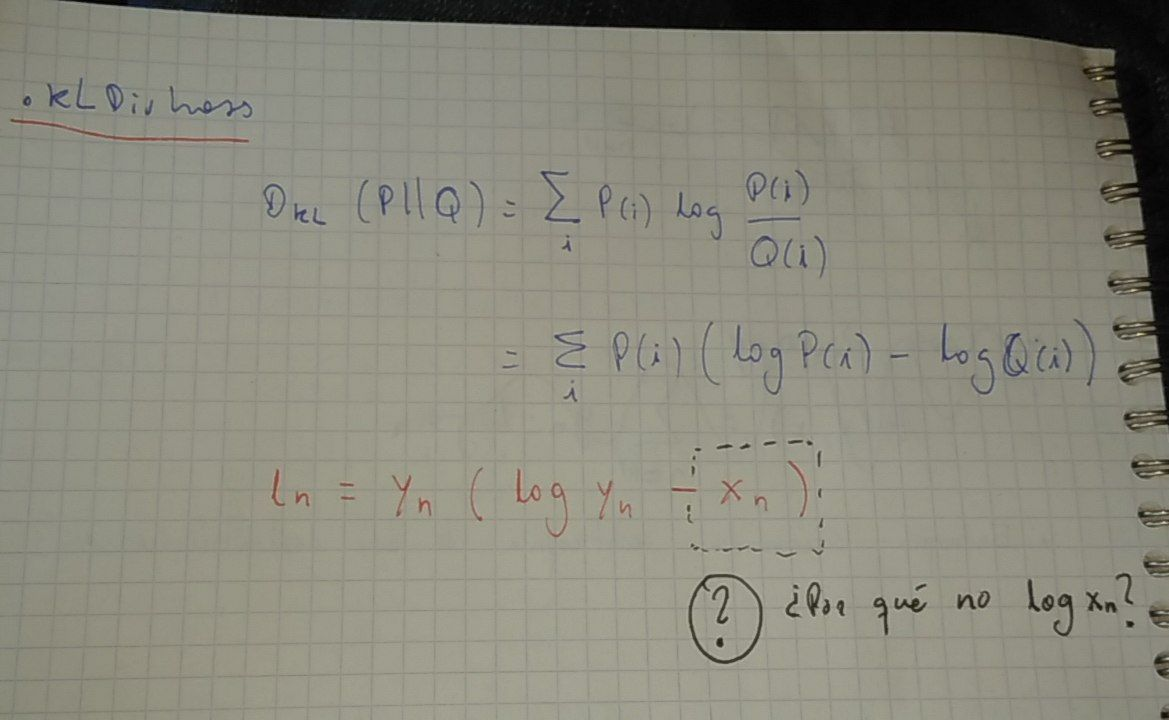 . KLDivLoss
D_KL (P||Q) = ∑_i P(i) log P(i)/Q(i)
= ∑_i P(i) ( log P(i) - log Q(i) )
l_n = y_n ( log y_n - x_n )
? ¿Por qué no log x_n?